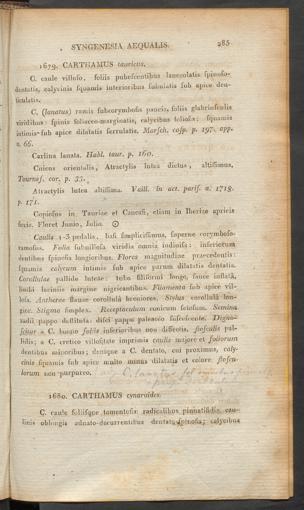 SYNGENESIA AEQUALIS. 285
1679. CARTHAMUS tauricus.
C. caule villoso, foliis pubescentibus lanceolatis spinoso-
dentatis, calycinis squamis interioribus subulatis sub apice den-
ticulatis.
C. (lanatus) ramis subcorymbosis paucis, foliis glabriusculis
viridibus: spinis foliaceo-marginatis, calycibus foliosis: squamis
intimis sub apice dilatatis serrulatis. Marsch. casp. p. 197. app.
n. 66.
Carlina lanata. Habl. taur. p. 160.
Cnicus orientalis, Atractylis lutea dictus, altissimus.
Tournef. cor. p. 33.
Atractylis lutea altissima. Vaill. in act. paris. a. 1718.
p. 171.
Copiosus in Tauriae et Caucasi, etiam in Iberiae apricis
siccis. Floret Junio, Julio. ☉
Caulis 1-3 pedalis, basi simplicissimus, superne corymboso-
ramosus. Folia subvillosa viridia omnia indivisa: inferiorum
dentibus spinosis longioribus. Flores magnitudine praecedentis:
squamis calycum intimis sub apice parum dilatatis dentatis.
Corollulae pallide luteae: tubo filiformi longo, fauce inflata,
limbi laciniis margine nigricantibus. Filamenta sub apice vil-
losa. Antherae flavae corollulà breviores. Stylus corollulà lon-
gior. Stigma simplex. Receptaculum conicum setosum. Semina
radii pappo destituta: disci pappo paleaceo fuscescente. Digno-
scitur a C. lanato foliis inferioribus non dissectis, flosculis pal-
lidis; a C. cretico villositate imprimis caulis majore et foliorum
dentibus minoribus; denique a C. dentato, cui proximus, caly-
cinis squamis sub apice multo minus dilatatis et colore floscu-
lorum non purpureo.
1680. CARTHAMUS cynaroides.
C. caule foliisque tomentosis: radicalibus pinnatifidis, cau-
linis oblongis adnato-decurrentibus dentato-spinosis; calycibus